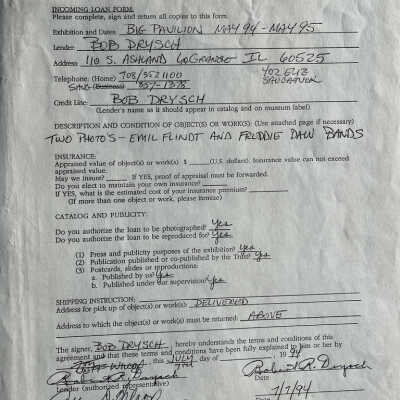 INCOMING LOAN FORM:
Please complete, sign and return all copies to this form.
Exhibition and Dates BIG PAVILION MAY 94 - MAY 95
Lender BOB DRYSCH
Address 110 S. ASHLAND LAGRANGE IL 60525
Telephone: (Home) 708/352 1100
SAUGATUCK
Credit Line: BOB DRYSCH
(Lender's name as it should appear in catalog and on museum label)
DESCRIPTION AND CONDITION OF OBJECT(S) OR WORK(S): (Use attached page if necessary)
TWO PHOTO'S - EMIL FLINDT AND FREDDIE DAW BANDS
INSURANCE:
Appraised value of object(s) or work(s) $ (U.S. dollars). Insurance value can not exceed
appraised value.
May we insure? If YES, proof of appraisal must be forwarded.
Do you elect to maintain your own insurance?
If YES, what is the estimated cost of your insurance premium?
(If more than one object or work, please itemize)
CATALOG AND PUBLICITY:
Do you authorize the loan to be photographed? Yes
Do you authorize the loan to be reproduced for? Yes
(1) Press and publicity purposes of the exhibition? Yes
(2) Publication published or co-published by the Trust? Yes
(3) Postcards, slides or reproductions:
a. Published by us? Yes
b. Published under our supervision? Yes
SHIPPING INSTRUCTION:
Address for pick up of object(s) or work(s): DELIVERED
Address to which the object(s) or work(s) must be returned: ABOVE
The signer, BOB DRYSCH, hereby understands the terms and conditions of this
agreement and that these terms and conditions have been fully explained to him or her by
, this JULY 7TH day of , 1994
Robert R. Drysch
Lender (authorized representative) Date
7/7/94